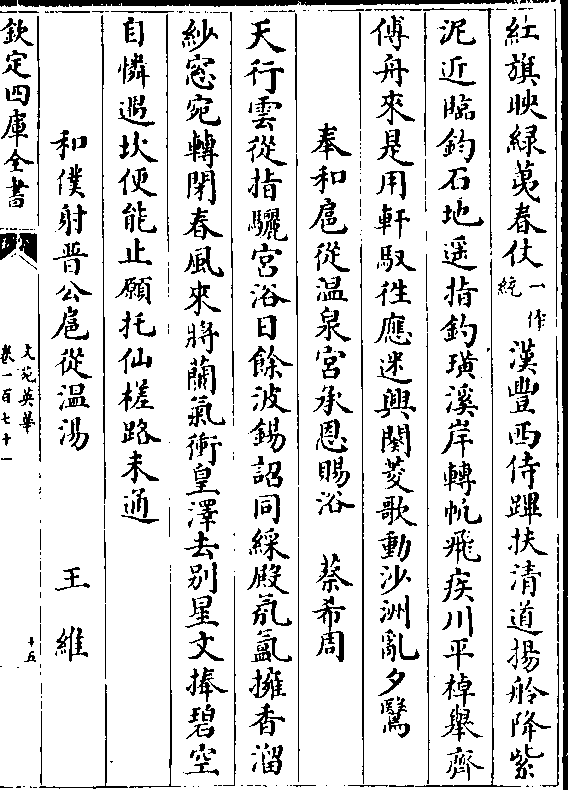 紅旗映綠荑春仗一作統漢豐西侍蹕扶清道揚舲降紫
泥近臨釣石地遥指釣璜溪岸轉帆飛疾川平棹舉齊
傅舟來是用軒馭徃應迷興闌菱歌動沙洲亂夕鷖
奉和扈從温泉宫承恩賜浴 蔡希周
天行雲從指驪宫浴日餘波錫詔同綵殿氛氲擁香溜
紗窓宛轉閉春風來將蘭氣衝皇澤去别星文捧碧空
自憐遇坎便能止願托仙槎路未通
和僕射晋公扈從温湯 王維
欽定四庫全書
文苑英華
卷一百七十一
十五